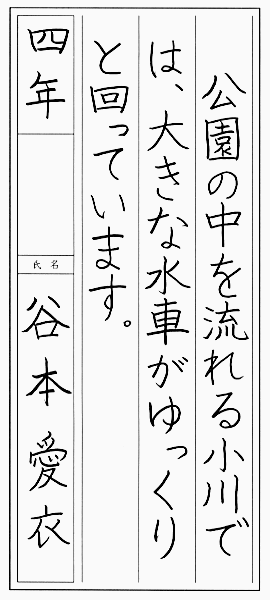 公園の中を流れる小川で
は、大きな水車がゆっくり
と回っています。
四年
氏名
谷本愛衣